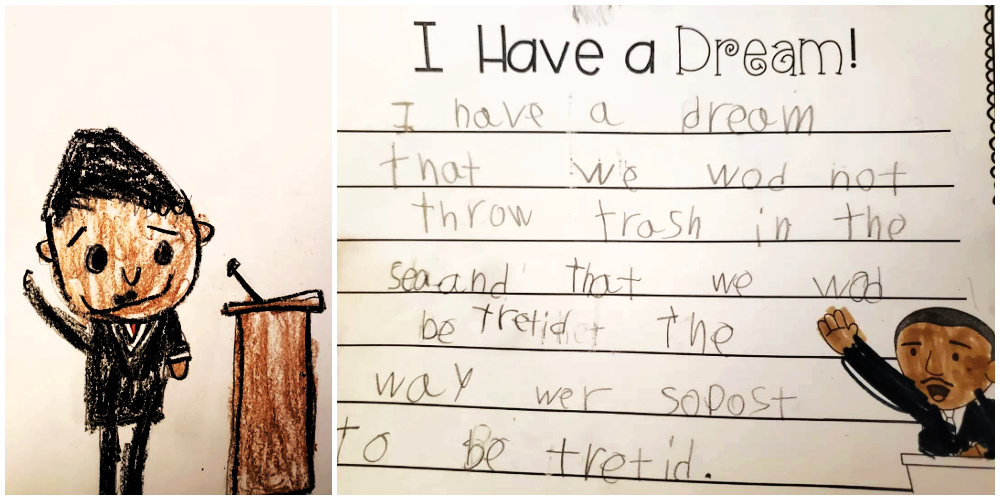 I Have a Dream!
I have a dream
that we wod not
throw trash in the
sea and that we wod
be tretid the
way wer sopost
to be tretid.